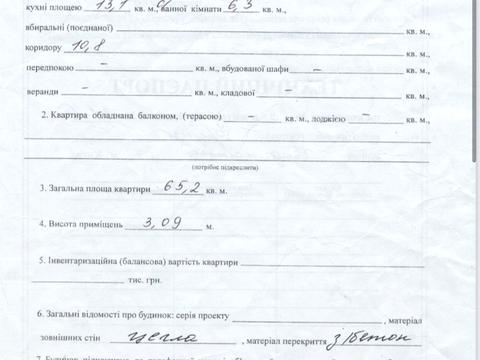 кухні площею 13,1 кв. м., ванної кімнати 6,3 кв. м.,
вбиральні (поєднаної) кв. м.,
коридору 10,8 кв. м.,
передпокою – кв. м., вбудованої шафи – кв. м.,
веранди – кв. м., кладової – кв. м.,
2. Квартира обладнана балконом, (терасою) – кв. м., лоджією – кв. м.,
(потрібне підкреслити)
3. Загальна площа квартири 65,2 кв. м.
4. Висота приміщень 3,09 м.
5. Інвентаризаційна (балансова) вартість квартири
тис. грн.
6. Загальні відомості про будинок: серія проекту , матеріал
зовнішних стін цегла , матеріал перекриття з/бетон